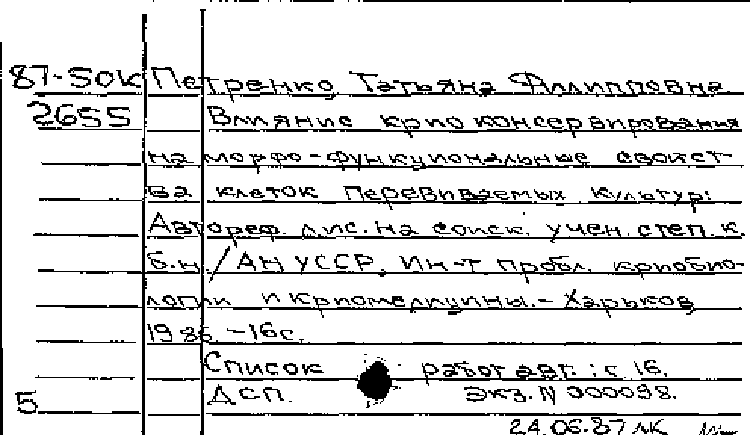 87-5ОК Петренко Татьяна Филипповна
2655 Влияние криоконсервирования
на морфо-функциональные свойст-
ва клеток перевиваемых культур:
Автореф. дис. на соиск. учен. степ. к.
б.н. / АН УССР, Ин-т пробл. криобио-
логии и криомедицины. - Харьков
1986. - 16с.
Список работ авт.: с. 16.
5 ДСП. Экз. N 000098.
24.06.87 ЛК